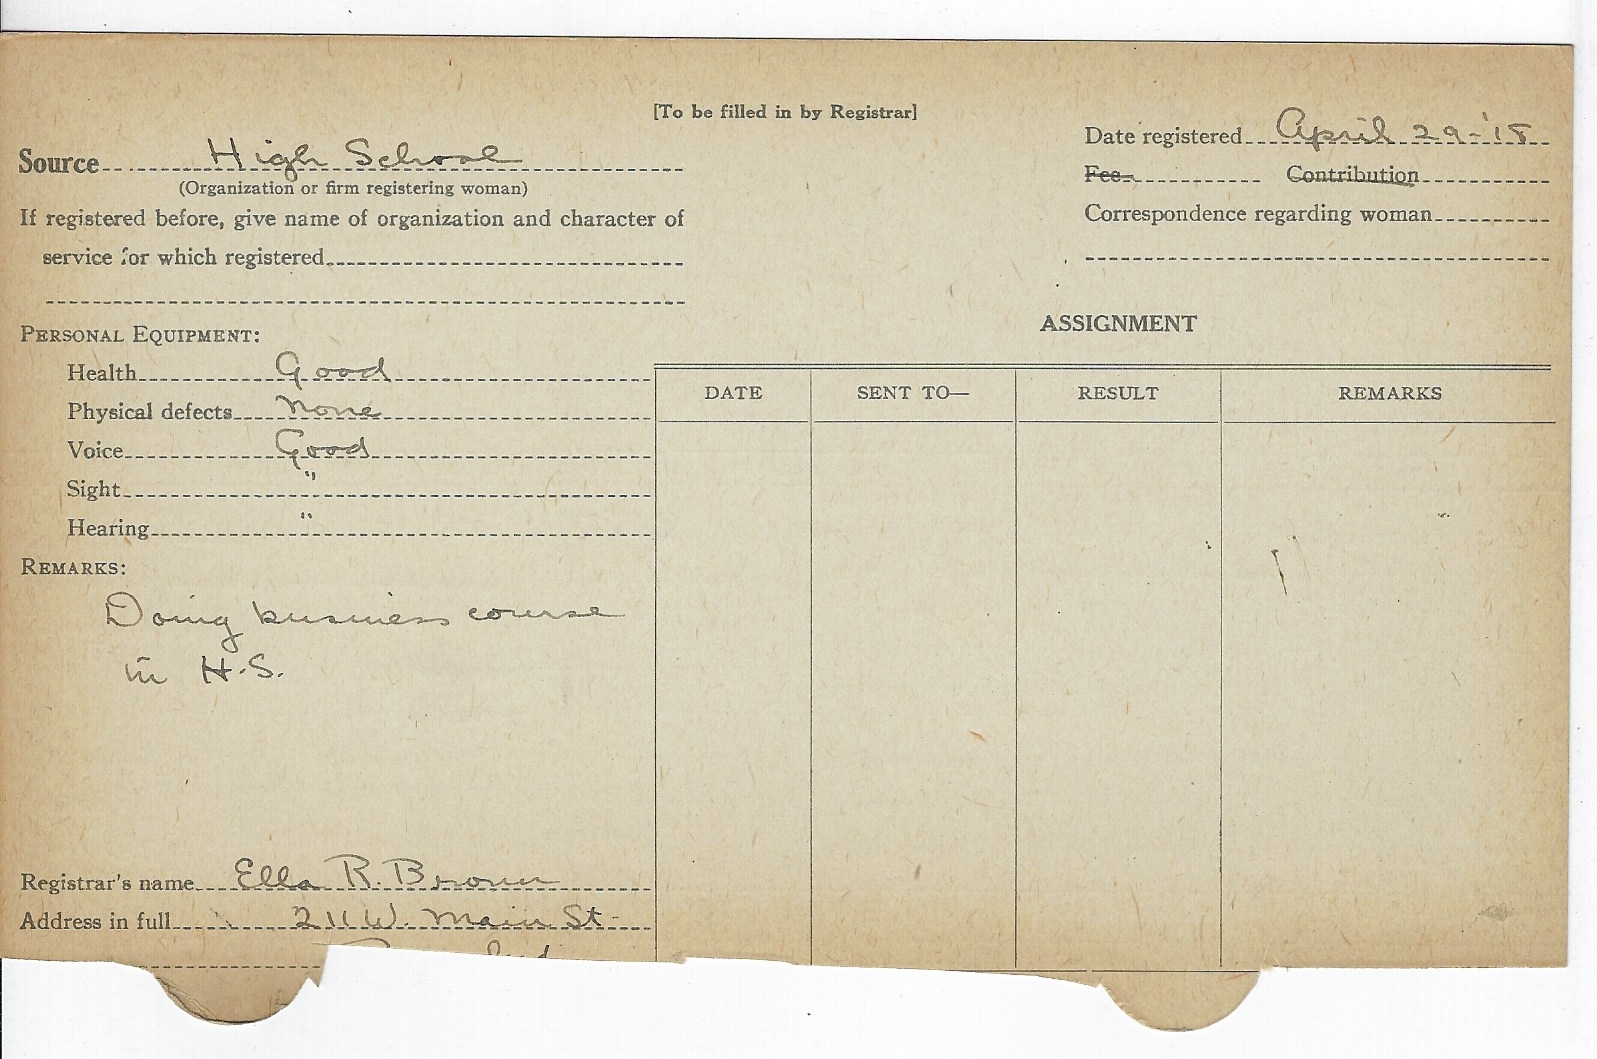 [To be filled in by Registrar]
Source High School
(Organization or firm registering woman)
If registered before, give name of organization and character of
service for which registered
Date registered April 29-'18
Fee Contribution
Correspondence regarding woman
PERSONAL EQUIPMENT:
Health Good
Physical defects none
Voice Good
Sight "
Hearing "
REMARKS:
Doing business course
in H.S.
ASSIGNMENT
DATE SENT TO— RESULT REMARKS
Registrar's name Ella R. Brown
Address in full 211 W. Main St-